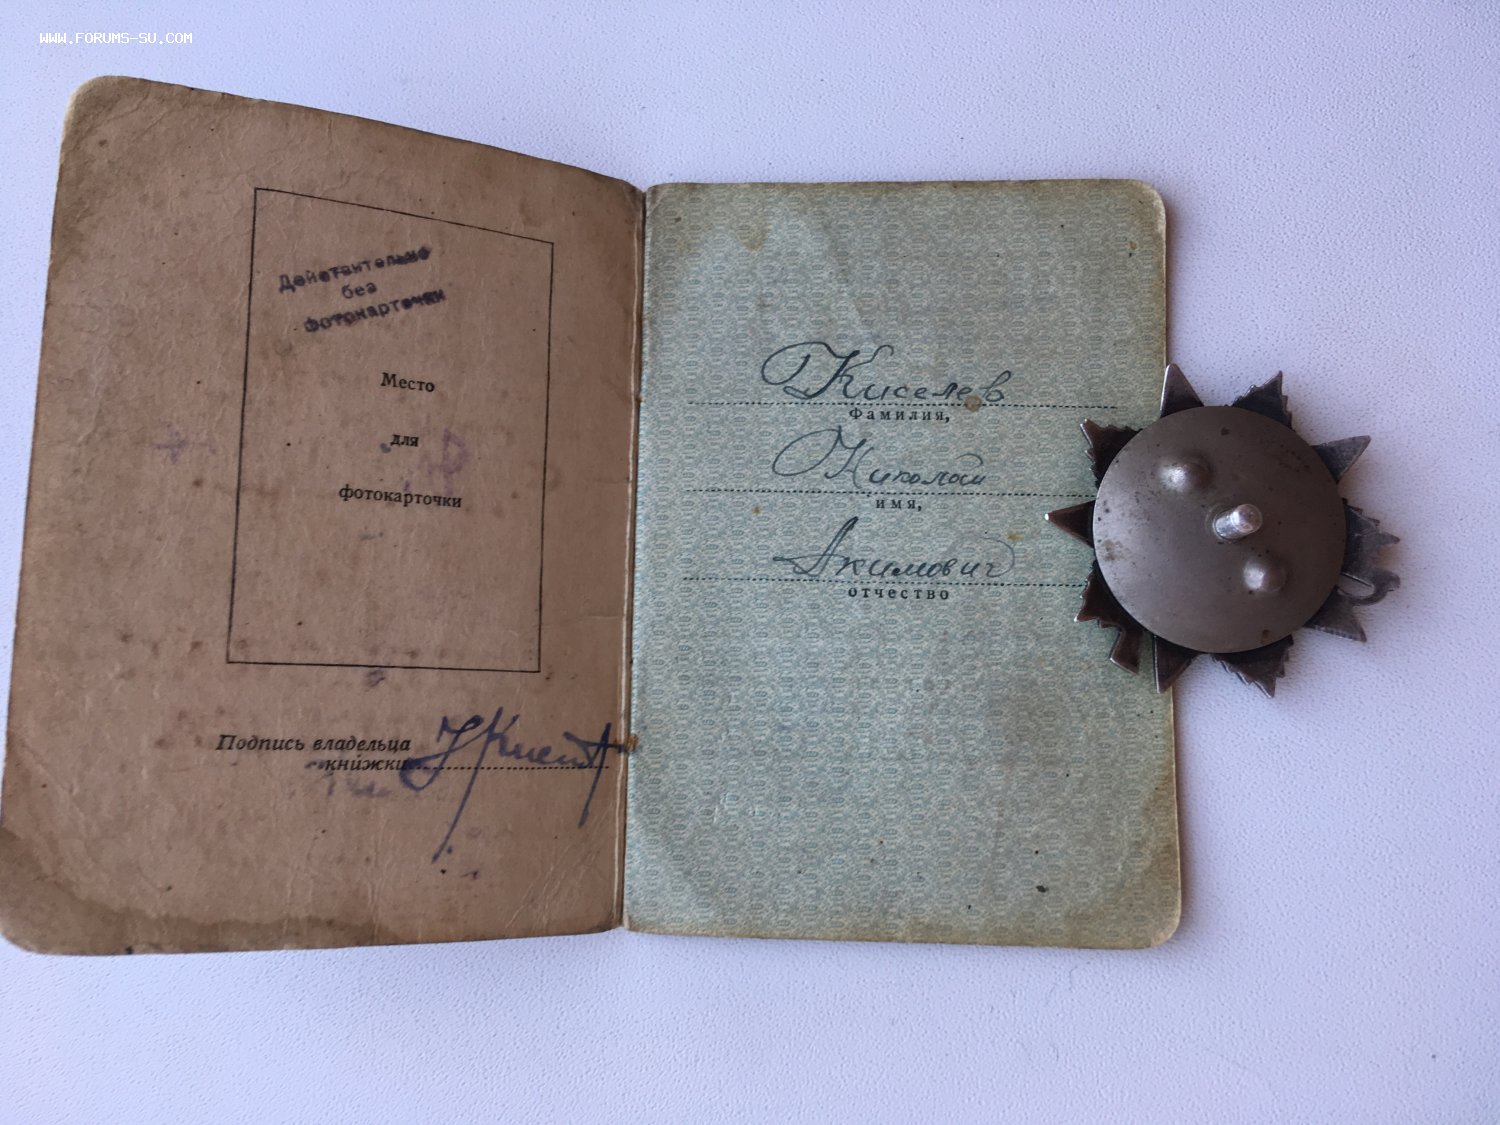 WWW.FORUMS-SU.COM
Действительно
без
фотокарточки
Место
для
фотокарточки
Подпись владельца
книжки
Киселев
Фамилия,
Николай
имя,
Акимович
отчество